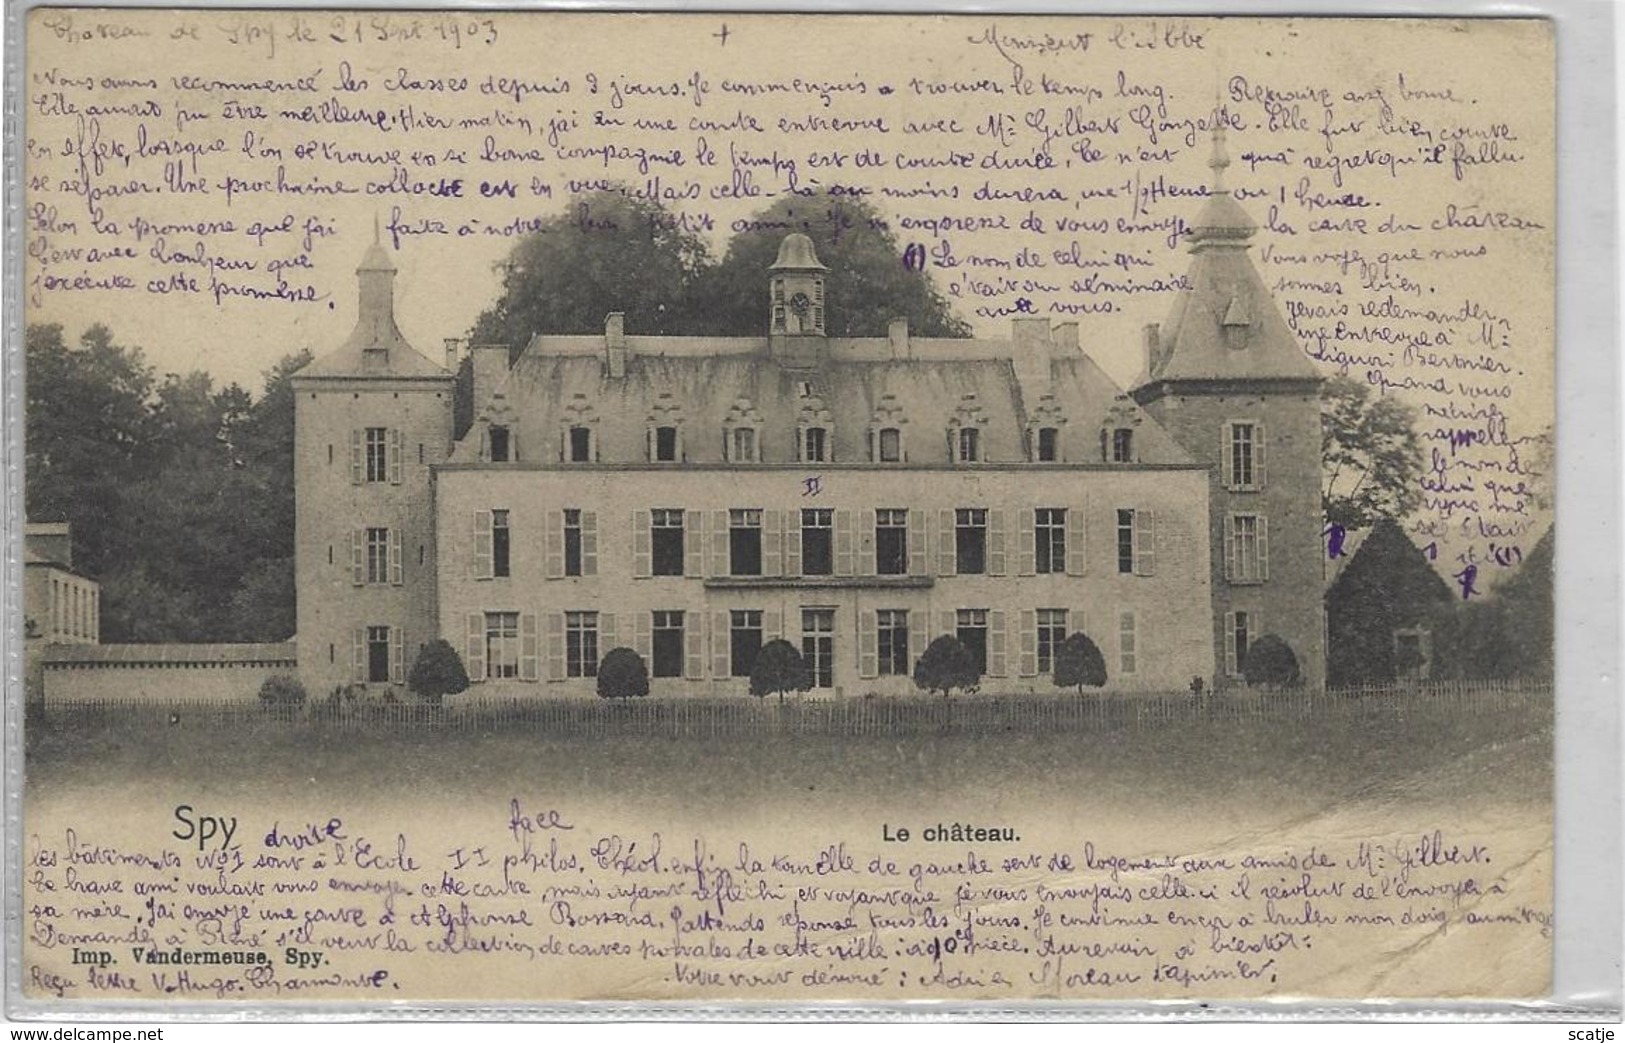 Château de Spy le 21 Sept 1903 + Monsieur l'Abbé
Nous avons recommencé les classes depuis 3 jours. Je commençais a trouver le temps long. Retraite assez bonne.
Elle aurait pu être meilleure. Hier matin, j'ai eu une courte entrevue avec Mr Gilbert Gonzette. Elle fut bien courte
en effet, lorsque l'on se trouve en si bonne compagnie le temps est de courte durée. Ce n'est qu'à regret qu'il fallu
se séparer. Une prochaine est en vue. Mais celle-là au moins durera, une 1/2 Heure ou 1 heure.
Selon la promesse que j'ai faite à notre bon petit ami: Je m'empresse de vous envoyer la carte du château
C'est avec bonheur que
j'exécute cette promesse.
(1) Le nom de celui qui
était au séminaire
avec vous.
Vous voyez que nous
sommes bien.
Je vais redemander
une entrevue à Mr
Liguori Bernier.
Quand vous
rappellez moi
le nom de
celui que
vous me
était
ici (1)
I
II
Spy
droite
face
Le château.
les bâtiments No I sont à l'Ecole II philos. Théol. enfin la tourelle de gauche sert de logement aux amis de Mr Gilbert.
Ce brave ami voulait vous envoyer cette carte, mais ayant réfléchi, et voyant que je vous envoyais celle-ci il résolut de l'envoyer à
sa mère. J'ai envoyé une carte à Alphonse Bossard. J'attends réponse tous les jours. Je continue encor à bruler mon doig
Demandez à s'il veut la collection de cartes postales de cette ville: à 10 ces pièce. Au revoir à bientôt:
Imp. Vandermeuse, Spy.
Reçu lettre V. Hugo. Charmante.
Votre tout dévoué: Adrien Moreau Lapinier.
scatje